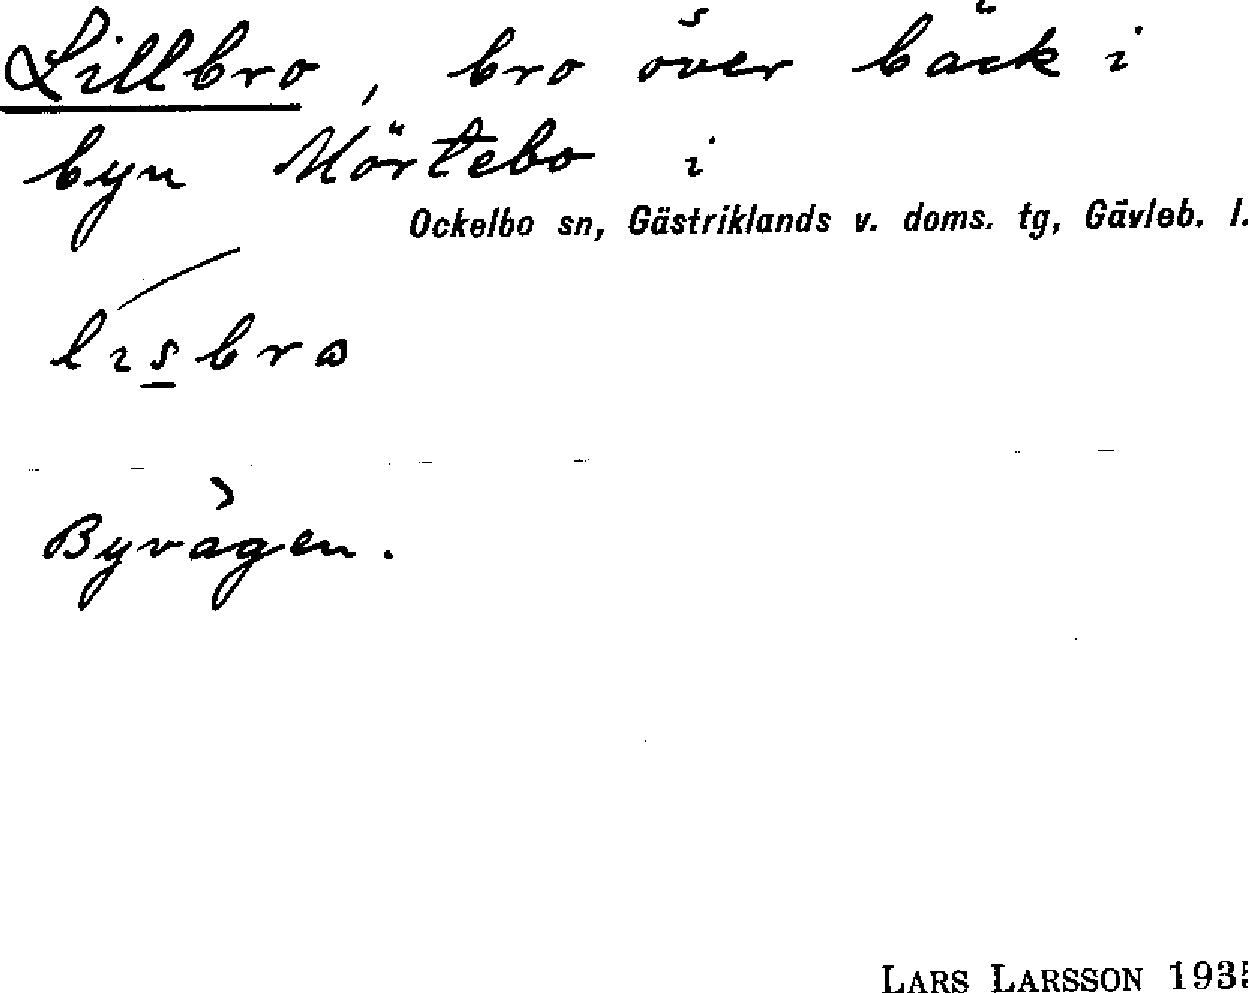 Lillbro, bro över bäck i
byn Mörtebo i
Ockelbo sn, Gästriklands v. doms. tg, Gävleb. l.
Byvägen.
LARS LARSSON 1935